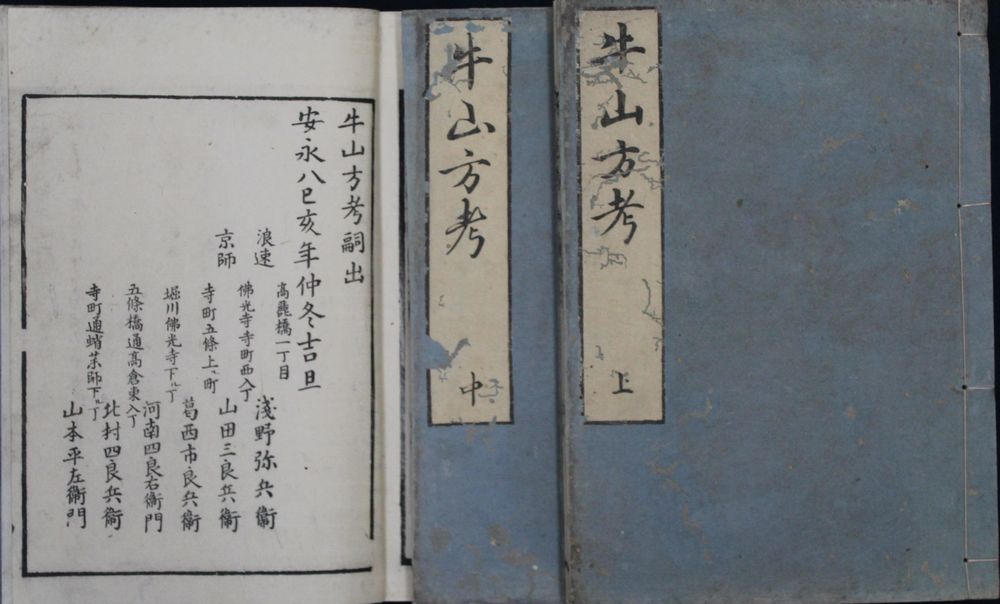 牛山方考
上
牛山方考
中
牛山方考嗣出
安永八己亥年仲冬吉旦
浪速
高麗橋一丁目
淺野弥兵衞
京師
佛光寺寺町西入丁
山田三良兵衞
寺町五條上ル町
葛西市良兵衞
堀川佛光寺下ル丁
河南四良右衞門
五條橋通高倉東入丁
北村四良兵衞
寺町通蛸茶師下ル丁
山本平左衞門